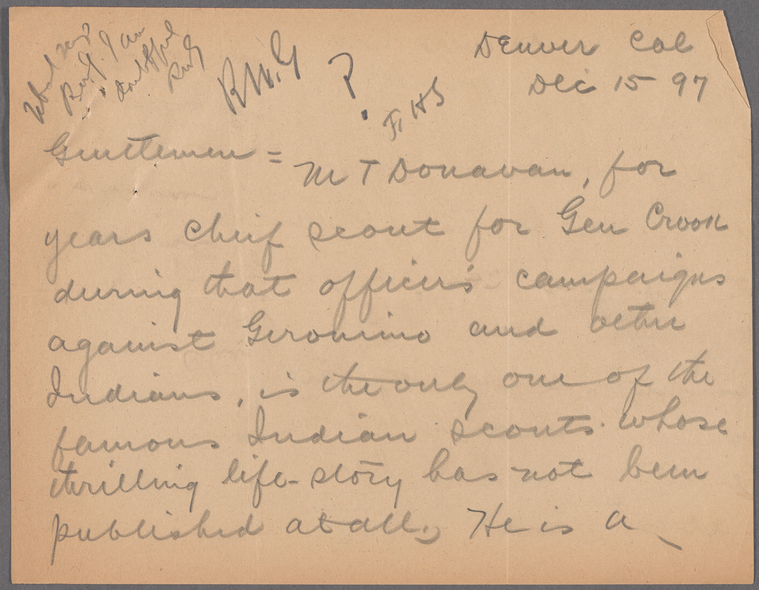 What says
Burf. I am
doubtful
RWG
?
F.H.S
Denver Col
Dec 15 97
Gentlemen =
M T Donavan, for
years cheif scout for Gen Crook
during that officer's campaigns
against Geronimo and other
Indians, is the only one of the
famous Indian scouts whose
thrilling life-story has not been
published at all. He is a